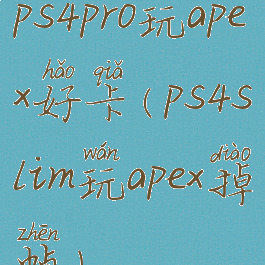 ps4pro玩ape
hǎo qiǎ
x好卡(ps4s
wán diào
lim玩apex掉
zhēn
帧)